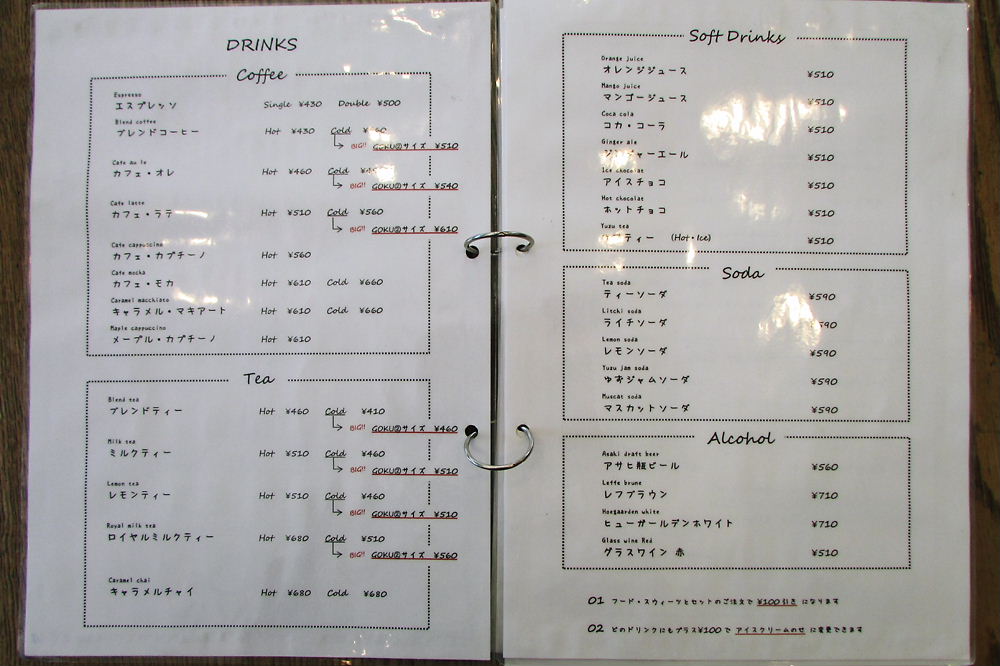 DRINKS
Coffee
Espresso
エスプレッソ Single ¥430 Double ¥500
Blend coffee
ブレンドコーヒー Hot ¥430 Cold
BIG!! GOKU②サイズ ¥510
Cafe au le
カフェ・オレ Hot ¥460 Cold
BIG!! GOKU②サイズ ¥540
Cafe latte
カフェ・ラテ Hot ¥510 Cold ¥560
BIG!! GOKU②サイズ ¥610
Cafe cappuccino
カフェ・カプチーノ Hot ¥560
Cafe mocha
カフェ・モカ Hot ¥610 Cold ¥660
Caramel macchiato
キャラメル・マキアート Hot ¥610 Cold ¥660
Maple cappuccino
メープル・カプチーノ Hot ¥610
Tea
Blend tea
ブレンドティー Hot ¥460 Cold ¥410
BIG!! GOKU②サイズ ¥460
Milk tea
ミルクティー Hot ¥510 Cold ¥460
BIG!! GOKU②サイズ ¥510
Lemon tea
レモンティー Hot ¥510 Cold ¥460
BIG!! GOKU②サイズ ¥510
Royal milk tea
ロイヤルミルクティー Hot ¥680 Cold ¥510
BIG!! GOKU②サイズ ¥560
Caramel chai
キャラメルチャイ Hot ¥680 Cold ¥680
Soft Drinks
Orange juice
オレンジジュース ¥510
Mango juice
マンゴージュース ¥510
Coca cola
コカ・コーラ ¥510
Ginger ale
ジンジャーエール ¥510
Ice chocolat
アイスチョコ ¥510
Hot chocolat
ホットチョコ ¥510
Yuzu tea
ティー (Hot・Ice) ¥510
Soda
Tea soda
ティーソーダ ¥590
Litchi soda
ライチソーダ ¥590
Lemon soda
レモンソーダ ¥590
Yuzu jam soda
ゆずジャムソーダ ¥590
Muscat soda
マスカットソーダ ¥590
Alcohol
Asahi draft beer
アサヒ瓶ビール ¥560
Leffe brune
レフブラウン ¥710
Hoegaarden white
ヒューガールデンホワイト ¥710
Glass wine Red
グラスワイン 赤 ¥510
01 フード・スウィーツとセットのご注文で ¥100引き になります
02 どのドリンクにもプラス¥100で アイスクリームのせ に変更できます